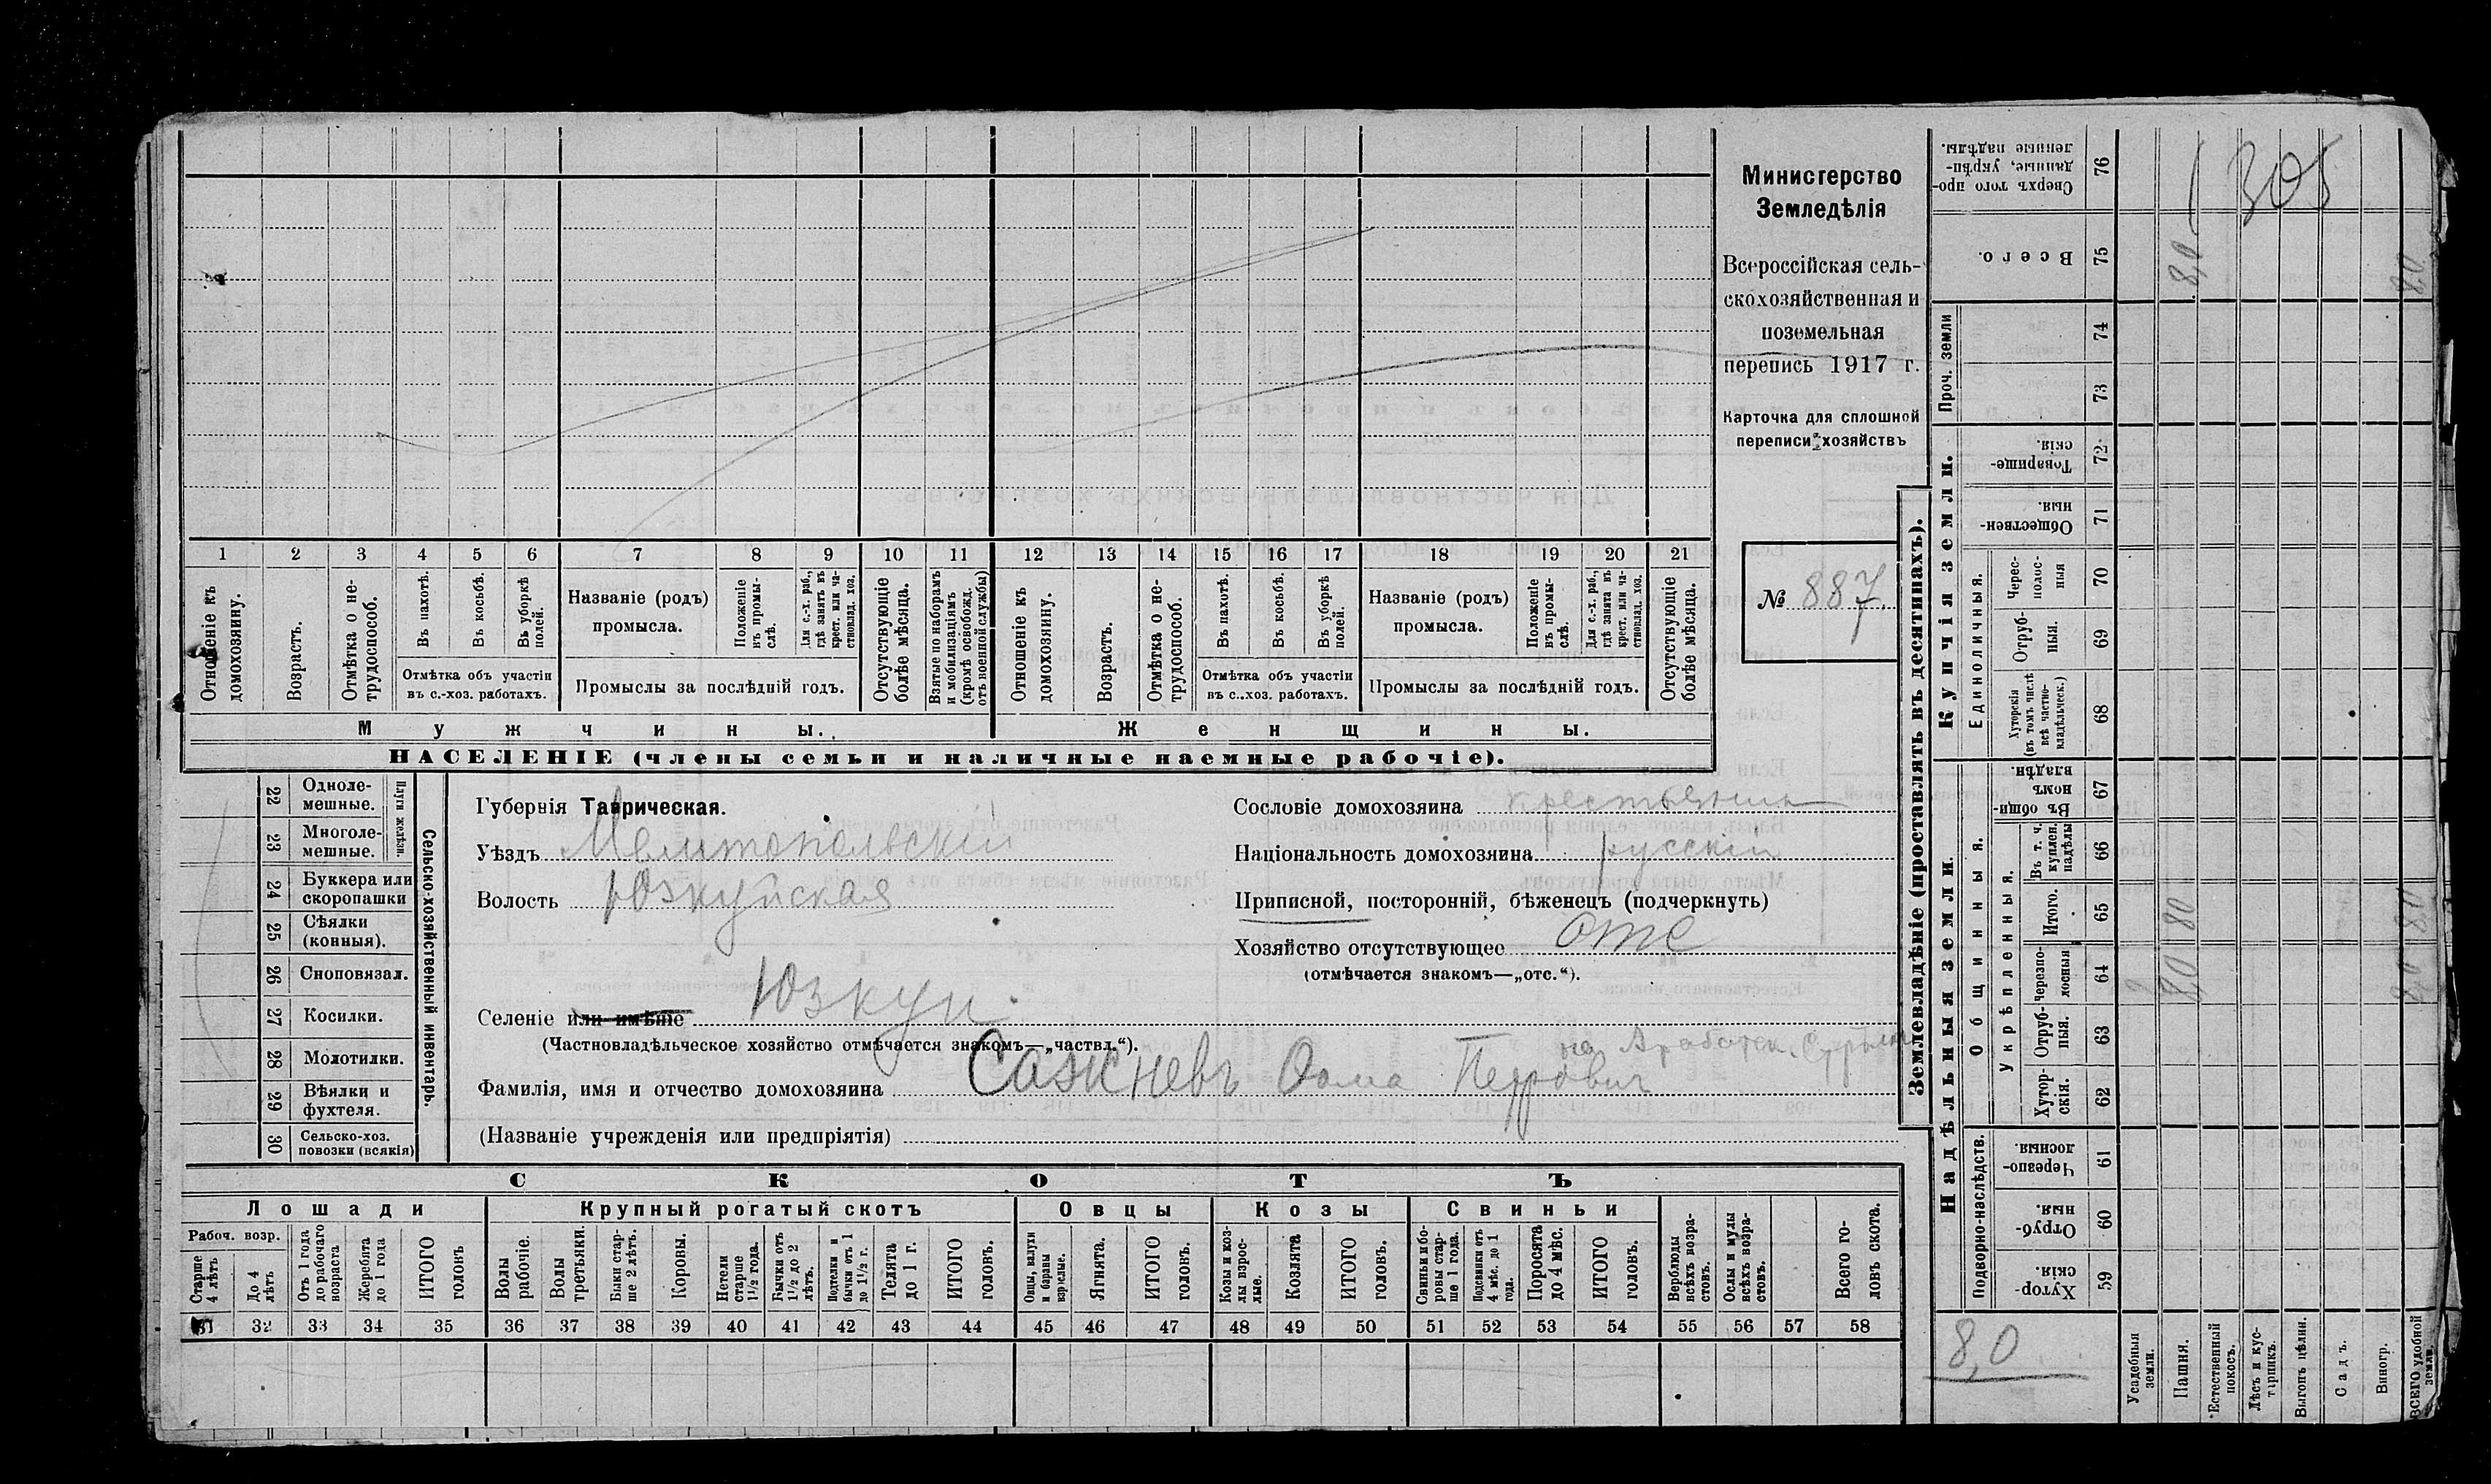 Министерство
Земледѣлія
Всероссійская сель-
скохозяйственная и
поземельная
перепись 1917 г.
Карточка для сплошной
переписи хозяйствъ
№ 887.
1 2 3 4 5 6 7 8 9 10 11 12 13 14 15 16 17 18 19 20 21
Отношеніе къ домохозяину.
Возрастъ.
Отмѣтка о не-
трудоспособ.
Въ пахотѣ.
Въ косьбѣ.
Въ уборкѣ
полей.
Отмѣтка объ участіи
въ с.-хоз. работахъ.
Названіе (родъ)
промысла.
Положеніе
въ промы-
слѣ.
Для с.-х. раб.,
гдѣ занятъ въ
крест. или ча-
стновлад. хоз.
Промыслы за послѣдній годъ.
Отсутствующіе
болѣе мѣсяца.
Взятые по наборамъ
и мобилизаціямъ
(кромѣ освобожд.
отъ военной службы)
Отношеніе къ
домохозяину.
Возрастъ.
Отмѣтка о не-
трудоспособ.
Въ пахотѣ.
Въ косьбѣ.
Въ уборкѣ
полей.
Отмѣтка объ участіи
въ с..хоз. работахъ.
Названіе (родъ)
промысла.
Положеніе
въ промы-
слѣ.
Для с.-х. раб.,
гдѣ занята въ
крест. или ча-
стновлад. хоз.
Промыслы за послѣдній годъ.
Отсутствующіе
болѣе мѣсяца.
Мужчины.
Женщины.
НАСЕЛЕНІЕ (члены семьи и наличные наемные рабочіе).
22 Одноле-
мешные.
23 Многоле-
мешные.
Плуги желѣзн.
24 Буккера или
скоропашки
25 Сѣялки
(конныя).
26 Сноповязал.
27 Косилки.
28 Молотилки.
29 Вѣялки и
фухтеля.
30 Сельско-хоз.
повозки (всякія)
Сельско-хозяйственный инвентарь.
Губернія Таврическая.
Уѣздъ Мелитопольскій
Волость Юзкуйская
Селеніе или имѣніе Юзкуи.
(Частновладѣльческое хозяйство отмѣчается знакомъ—„частвл.“).
Фамилія, имя и отчество домохозяина Сажневъ Ѳома Петрович
(Названіе учрежденія или предпріятія)
Сословіе домохозяина крестьянинъ
Національность домохозяина русскій
Приписной, посторонній, бѣженецъ (подчеркнуть)
Хозяйство отсутствующее отс
(отмѣчается знакомъ—„отс.“).
СКОТЪ
Лошади
Крупный рогатый скотъ
Овцы
Козы
Свиньи
Рабоч. возр.
Старше
4 лѣтъ
До 4
лѣтъ
Отъ 1 года
до рабочаго
возраста
Жеребята
до 1 года
ИТОГО
головъ
Волы
рабочіе.
Волы
третьяки.
Быки стар-
ше 2 лѣтъ.
Коровы.
Нетели
старше
1½ года.
Бычки отъ
1½ до 2
лѣтъ.
Подтелки и
бычки отъ 1
до 1½ г.
Телята
до 1 г.
ИТОГО
головъ.
Овцы, валухи
и бараны
взрослые.
Ягнята.
ИТОГО
головъ.
Козы и коз-
лы взрос-
лые.
Козлята
ИТОГО
головъ.
Свиньи и бо-
ровы стар-
ше 1 года.
Подсвинки отъ
4 мѣс. до 1
года.
Поросята
до 4 мѣс.
ИТОГО
головъ.
Верблюды
всѣхъ возра-
стовъ.
Ослы и мулы
всѣхъ возра-
стовъ.
Всего го-
ловъ скота.
31 32 33 34 35 36 37 38 39 40 41 42 43 44 45 46 47 48 49 50 51 52 53 54 55 56 57 58
Землевладѣніе (проставлять въ десятинахъ).
Купчія земли.
Надѣльныя земли.
Сверхъ того про-
данные, укрѣп-
ленные надѣлы. 76
305
Всего. 75 8,0 8,0
Проч. земли
74
73
Товарище-
скія. 72
Обществен-
ныя. 71
Единоличныя.
Черес-
полос-
ныя 70
Отруб-
ныя. 69
Хуторскія
(въ томъ числѣ
всѣ частно-
владѣльческ.) 68
Общинныя.
Въ общи-
номъ
владѣн. 67
Укрѣпленныя.
Въ т. ч.
куплен.
надѣлы 66
Итого. 65 80 8,0
Черезпо-
лосныя 64 8,0 8,0
Отруб-
ныя. 63
Хутор-
скія. 62
Подворно-наслѣдств.
Черезпо-
лосныя 61
Отруб-
ныя. 60
Хутор-
скія. 59
8,0
Усадебныя
земли.
Пашня.
Естественный
покосъ.
Лѣсъ и кус-
тарникъ.
Выгонъ цѣлин.
Садъ.
Виногр.
ВСЕГО удобной
земли.